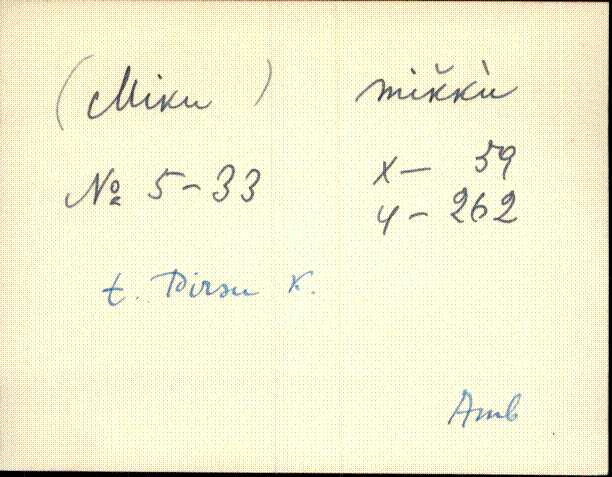 (Miku) miškù
№ 5-33 x- 59
y- 262
t. Pirsu k.
Amb